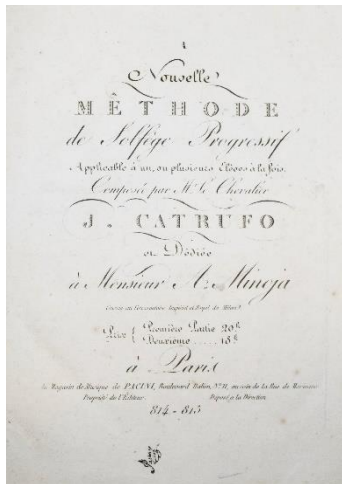 Nouvelle
MÊTHODE
de Solfège Progressif
Applicable à un, ou plusieurs Elèves à la fois.
Composée par Mr. le Chevalier
J. CATRUFO
et Dédiée
à Monsieur A. Minoja
Censeur au Conservatoire Impérial et Royal de Milan.
Prix Première Partie 20
Deuxième ..... 15
à Paris
Magasin de Musique de PACINI, Boulevard Italien, No. 11, au coin de la Rue de Marivaux
Propriété de l'Editeur. Déposé à la Direction
814-815